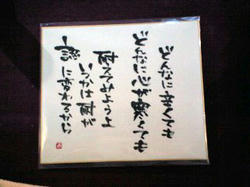 どんなに辛くても
どんなに心が寒くても
耐えてみようよ
いつかは耐が
に変わるから